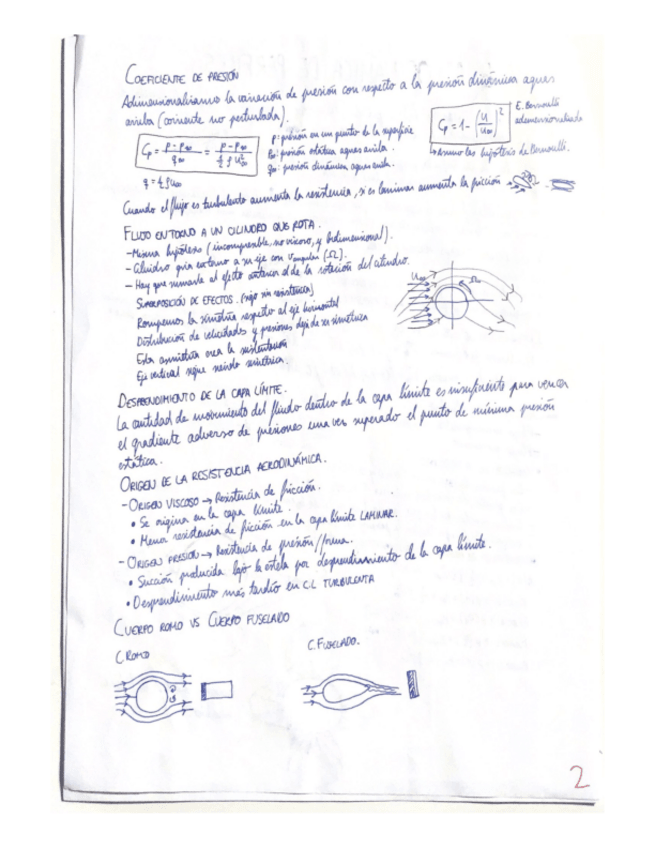 COEFICIENTE DE PRESIÓN
Adimensionalizamos la variación de presión con respecto a la presión dinámica aguas
arriba (corriente no perturbada).
Cp = (p - p∞)/q∞ = (p - p∞)/(½ ρ U∞²)
p: presión en un punto de la superficie
p∞: presión estática aguas arriba.
q∞: presión dinámica aguas arriba.
Cp = 1 - (U/U∞)²
E. Bernoulli
adimensionalizada
→ Asumo las hipótesis de Bernoulli.
q = ½ ρ U∞
Cuando el flujo es turbulento aumenta la resistencia, si es laminar aumenta la fricción
FLUJO ENTORNO A UN CILINDRO QUE ROTA.
- Misma hipótesis (incompresible, no viscoso, y bidimensional).
- Cilindro gira entorno a su eje con Vangular (Ω).
- Hay que sumarle al efecto anterior el de la rotación del cilindro.
SUPERPOSICIÓN DE EFECTOS. (sigo sin resistencia)
Rompemos la simetría respecto al eje horizontal
Distribución de velocidades y presiones deja de ser simétrica
Esta asimetría crea la sustentación
Eje vertical sigue siendo simétrica.
U∞
Ω
DESPRENDIMIENTO DE LA CAPA LÍMITE.
La cantidad de movimiento del fluido dentro de la capa límite es insuficiente para vencer
el gradiente adverso de presiones una vez superado el punto de mínima presión
estática.
ORIGEN DE LA RESISTENCIA AERODINÁMICA.
- ORIGEN VISCOSO → Resistencia de fricción.
• Se origina en la capa límite.
• Menor resistencia de fricción en la capa límite LAMINAR.
- ORIGEN PRESIÓN → Resistencia de presión/forma.
• Succión producida bajo la estela por desprendimiento de la capa límite.
• Desprendimiento más tardío en C.L TURBULENTA
CUERPO ROMO VS CUERPO FUSELADO
C.ROMO
C.FUSELADO.
2